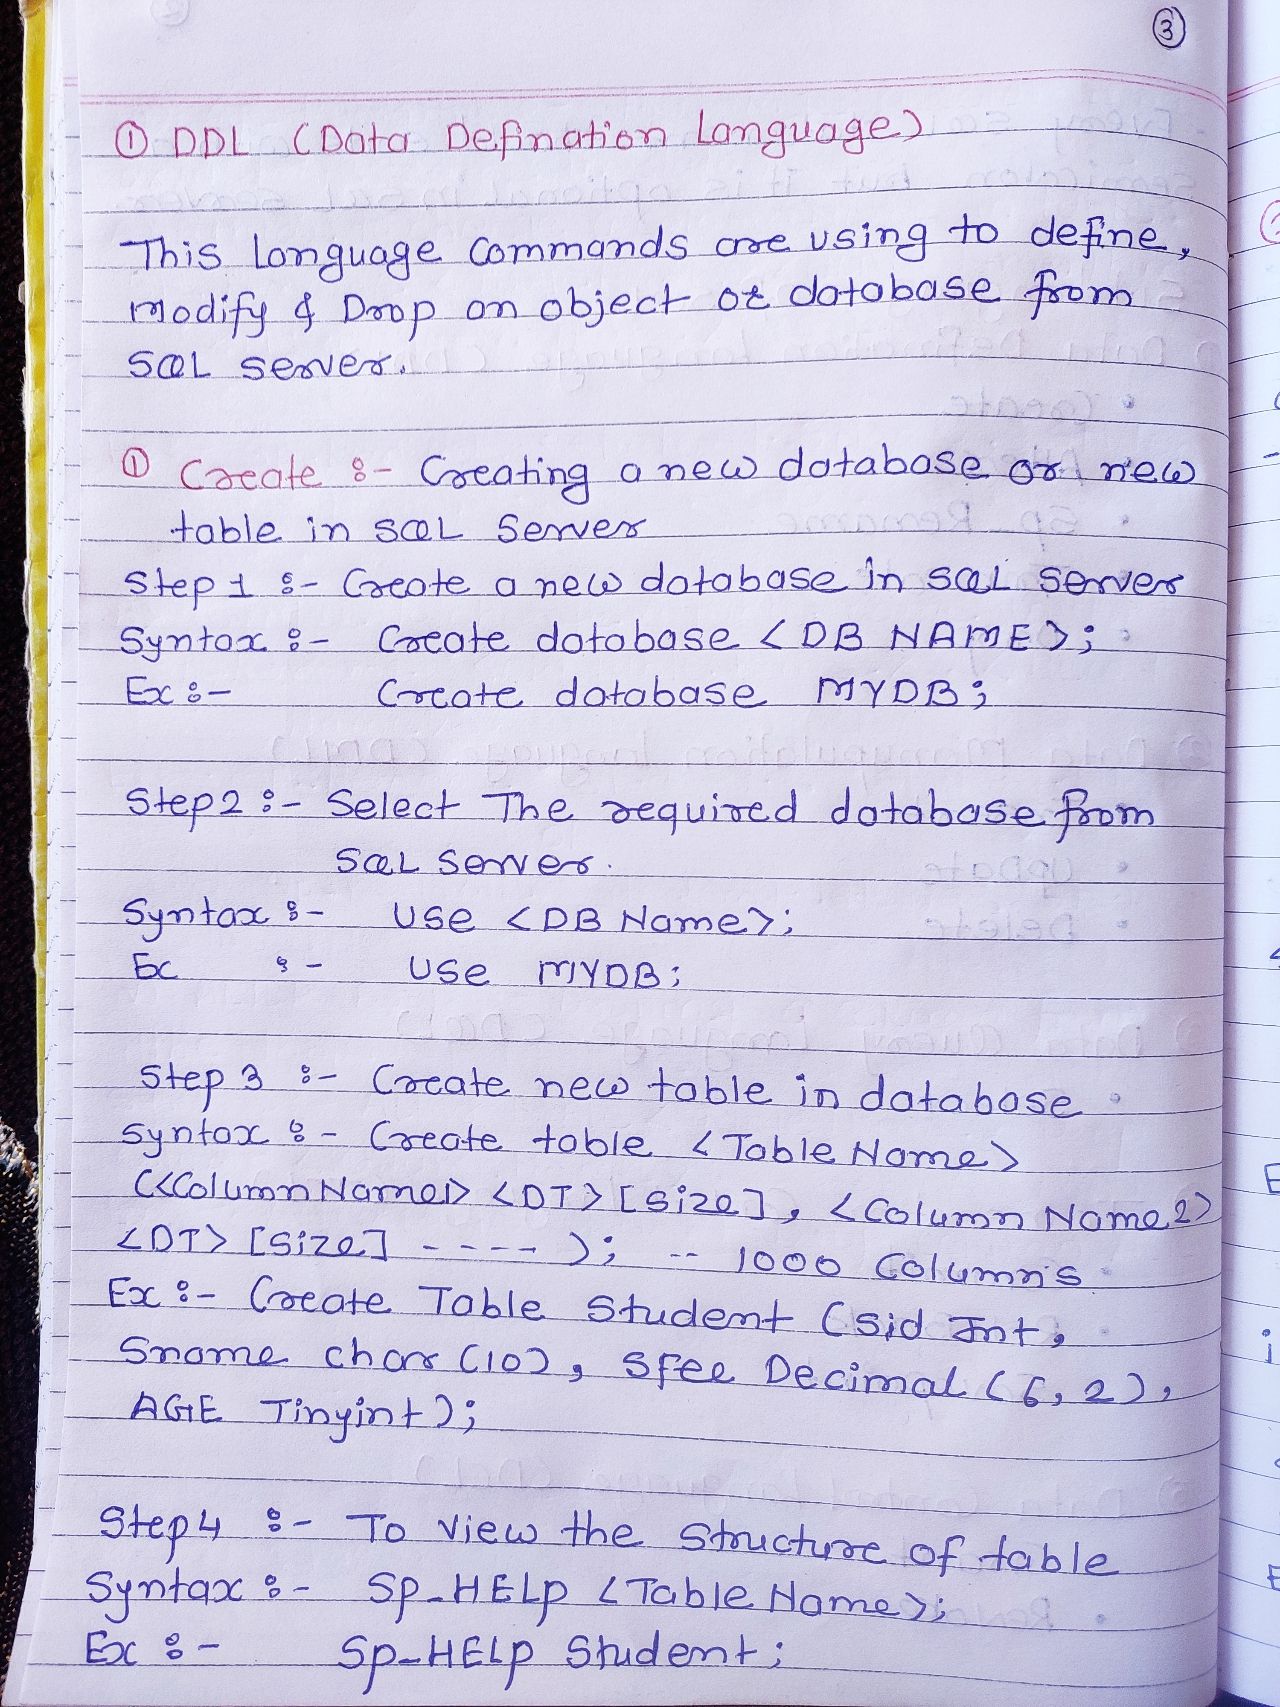 3
① DDL (Data Defination Language)
This language commands are using to define,
modify & Drop an object or database from
SQL server.
① Create :- Creating a new database or new
table in SQL Server
Step 1 :- Create a new database in SQL server
Syntax :- Create database <DB NAME>;
Ex :- Create database MYDB;
Step2 :- Select The required database from
SQL server.
Syntax :- USE <DB Name>;
Ex :- USE MYDB;
Step 3 :- Create new table in database
Syntax :- Create table <Table Name>
(<Column Name1> <DT> [size], <Column Name2>
<DT> [size] ---- ); -- 1000 Columns
Ex :- Create Table Student (sid Int,
Sname char (10), sfee Decimal (6, 2),
AGE Tinyint);
Step4 :- To view the structure of table
Syntax :- Sp_HELP <Table Name>;
Ex :- Sp_HELP Student;